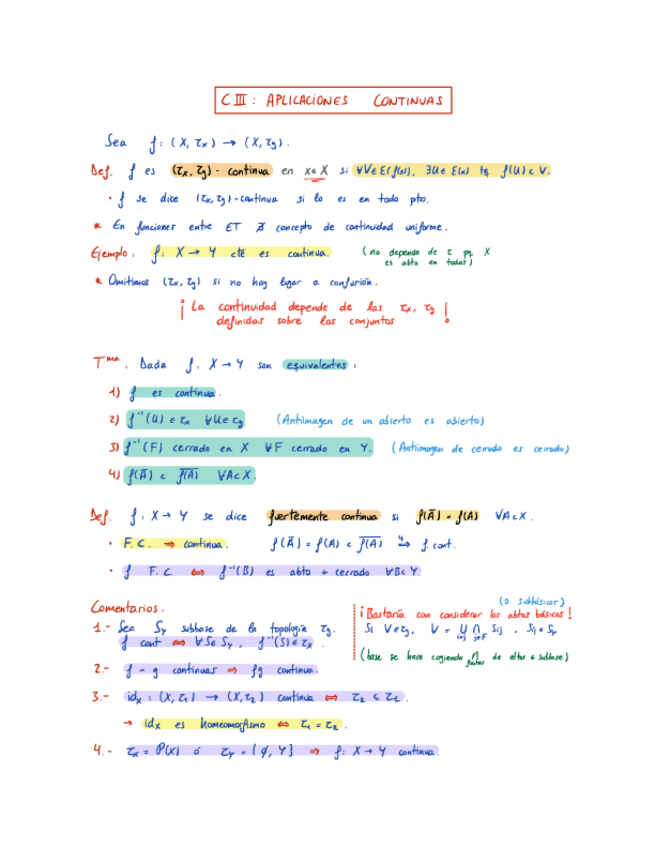 C III : APLICACIONES CONTINUAS
Sea f: (X, τx) → (X, τy).
Def. f es (τx, τy) - continua en x∈X si ∀V∈E(f(x)), ∃U∈E(x) tq f(U)⊂V.
· f se dice (τx, τy)-continua si lo es en todo pto.
* En funciones entre ET ∄ concepto de continuidad uniforme.
Ejemplo. f: X → Y cte es continua. (no depende de τ pq X
es abto en todas)
* Omitimos (τx, τy) si no hay lugar a confusión.
¡ La continuidad depende de las τx, τy !
definidas sobre los conjuntos
Tma. Dada f: X → Y son equivalentes:
1) f es continua.
2) f⁻¹(U) ∈ τx ∀U∈τy (Antiimagen de un abierto es abierto)
3) f⁻¹(F) cerrado en X ∀F cerrado en Y. (Antiimagen de cerrado es cerrado)
4) f(Ā) ⊂ \overline{f(A)} ∀A⊂X.
Def. f: X → Y se dice fuertemente continua si f(Ā) = f(A) ∀A⊂X.
· F.C. ⇒ continua. f(Ā) = f(A) ⊂ \overline{f(A)} ⇒ 4 f. cont.
· f F.C. ⇔ f⁻¹(B) es abto + cerrado ∀B⊂Y.
Comentarios.
1.- Sea Sy subbase de la topología τy.
f cont ⇔ ∀S∈Sy, f⁻¹(S)∈τx.
(o subbásicos)
¡Bastaría con considerar los abtos básicos!
Si V∈τy, V = ∪ ∩ Sij, Sij∈Sy
(base se hace cogiendo ∩ finitas de eltos ∈ subbase)
2.- f ∧ g continuas ⇒ fg continua.
3.- idx : (X, τ1) → (X, τ2) continua ⇔ τ2 ⊂ τ1.
→ idx es homeomorfismo ⇔ τ1 = τ2.
4.- τx = P(X) ó τy = {∅, Y} ⇒ f: X → Y continua.